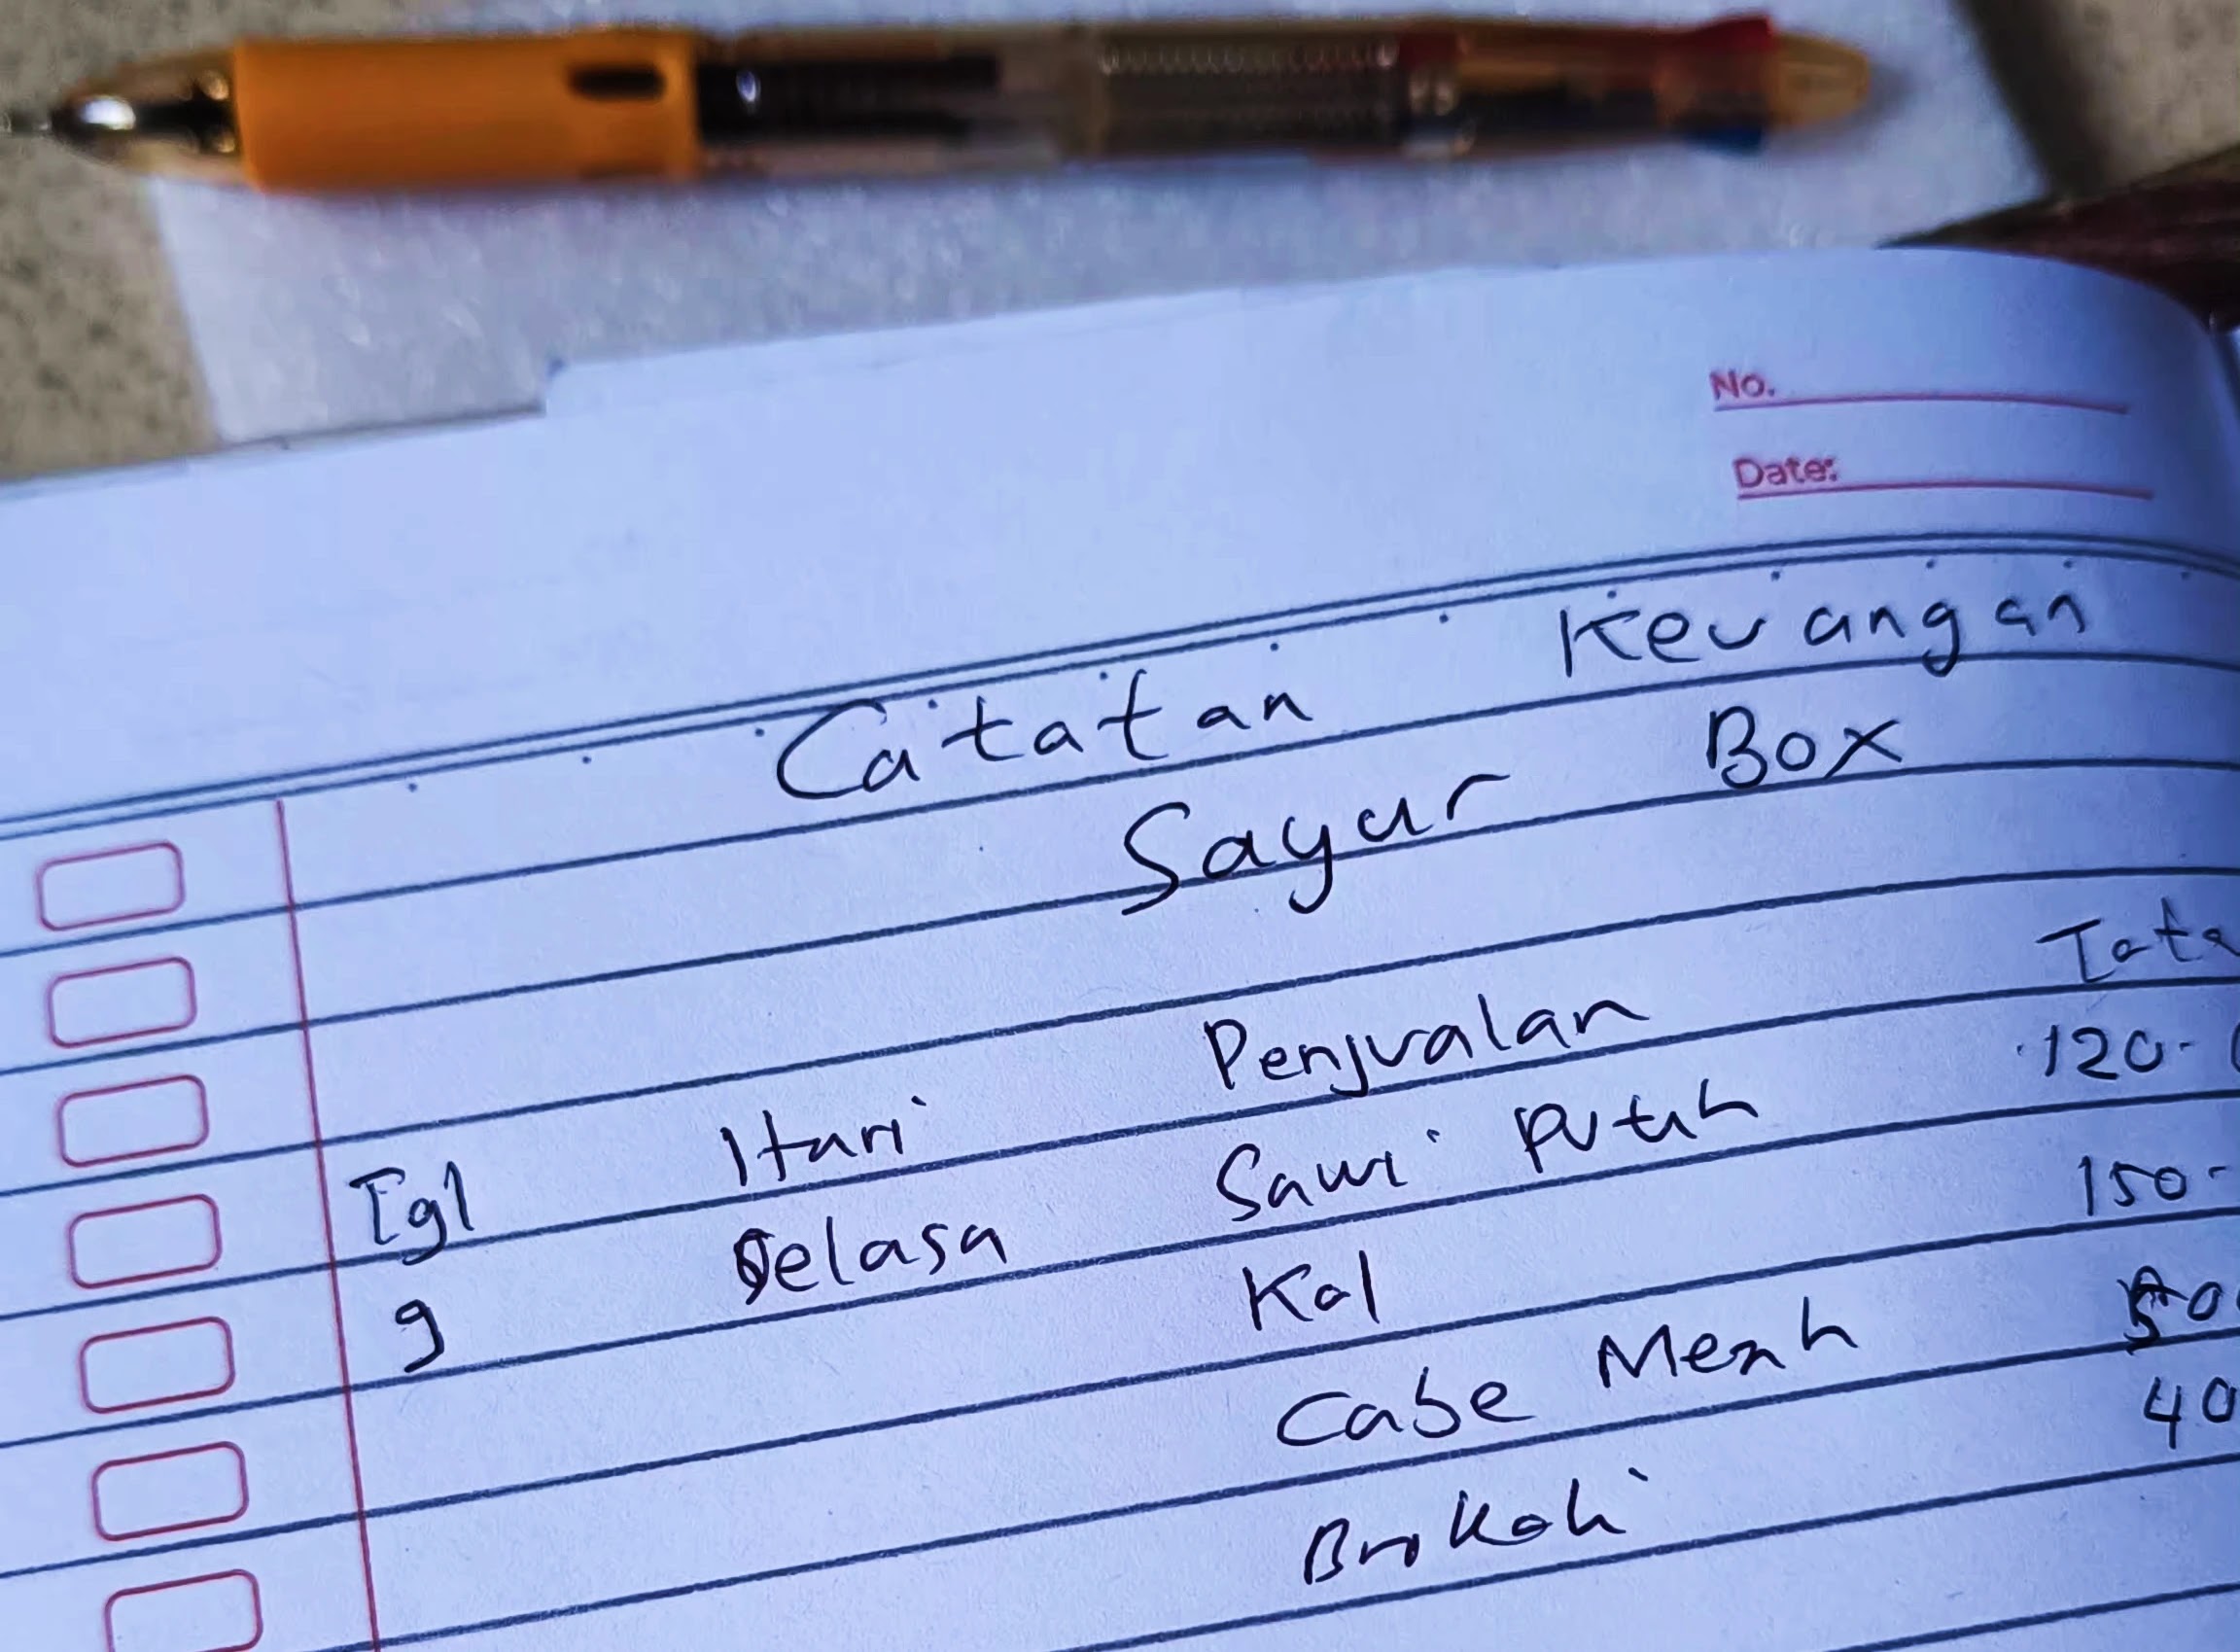 No.
Date:
Catatan Keuangan
Sayur Box
Tgl Hari Penjualan
9 Selasa Sawi Putih 120.
Kol 150.
Cabe Merah
Brokoli 40